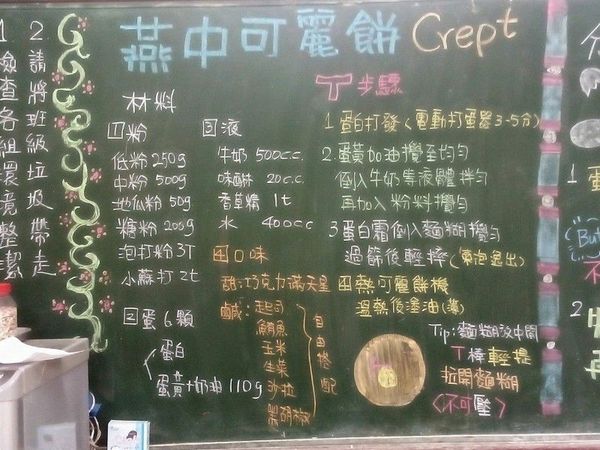 燕中可麗餅 Crept
1檢查各組環境整潔
2.請將班級垃圾帶走
材料
1粉
低粉250g
中粉500g
地瓜粉50g
糖粉200g
泡打粉3T
小蘇打2t
2蛋6顆
蛋白
蛋黃+奶油110g
3液
牛奶500c.c.
味醂20c.c.
香草精1t
水400cc
四口味
甜:巧克力滿天星
鹹:起司
鮪魚
玉米
生菜
沙拉
黑胡椒
自由搭配
步驟
1蛋白打發(電動打蛋器3-5分)
2.蛋黃加油攪至均勻
倒入牛奶等液體拌勻
再加入粉料攪勻
3蛋白霜倒入麵糊攪勻
過篩後輕摔(氣泡溢出)
四熱可麗餅機
溫熱後塗油(薄)
Tip:麵糊放中間
T棒輕提
拉開麵糊
<不可壓>